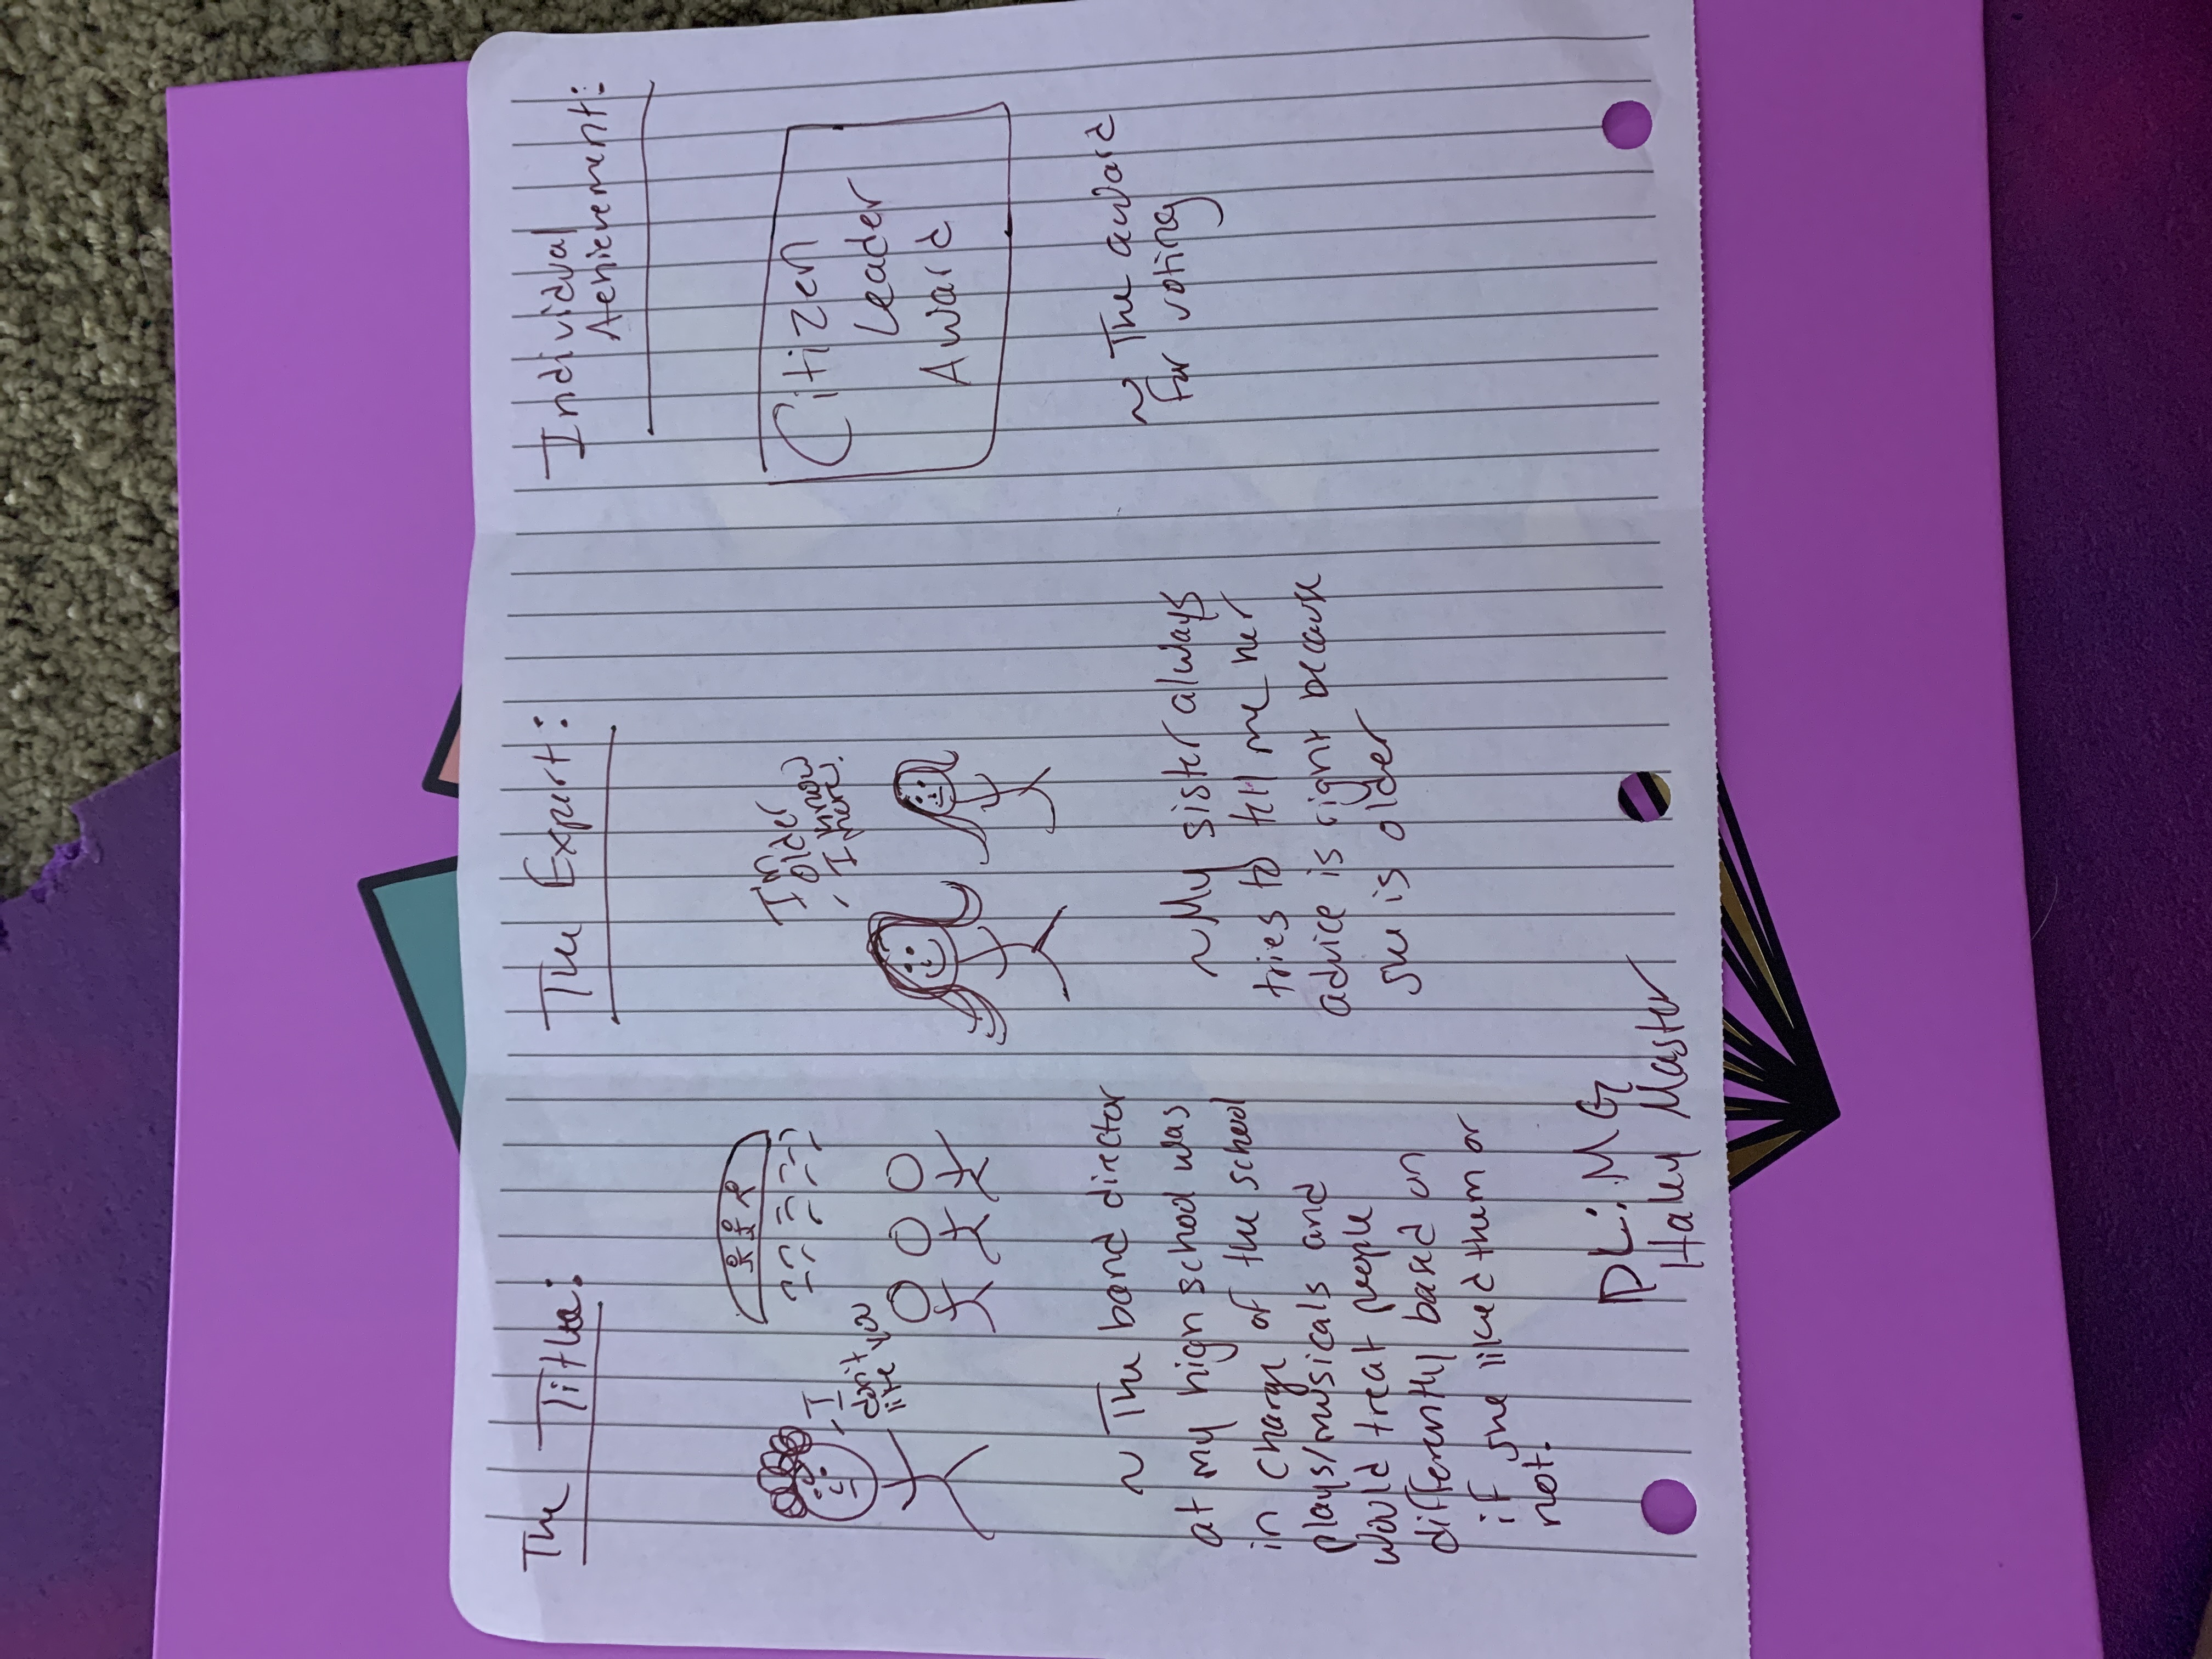 The Title:
I
don't
like you
~ The band director
at my high school was
in charge of the school
plays/musicals and
would treat people
differently based on
if she liked them or
not.
The Expert:
I'm
older
I know
more!
~My sister always
tries to tell me her
advice is right because
she is older
Individual
Achievement:
Citizen
Leader
Award
~ The award
for voting
DL: MG
Haley Master